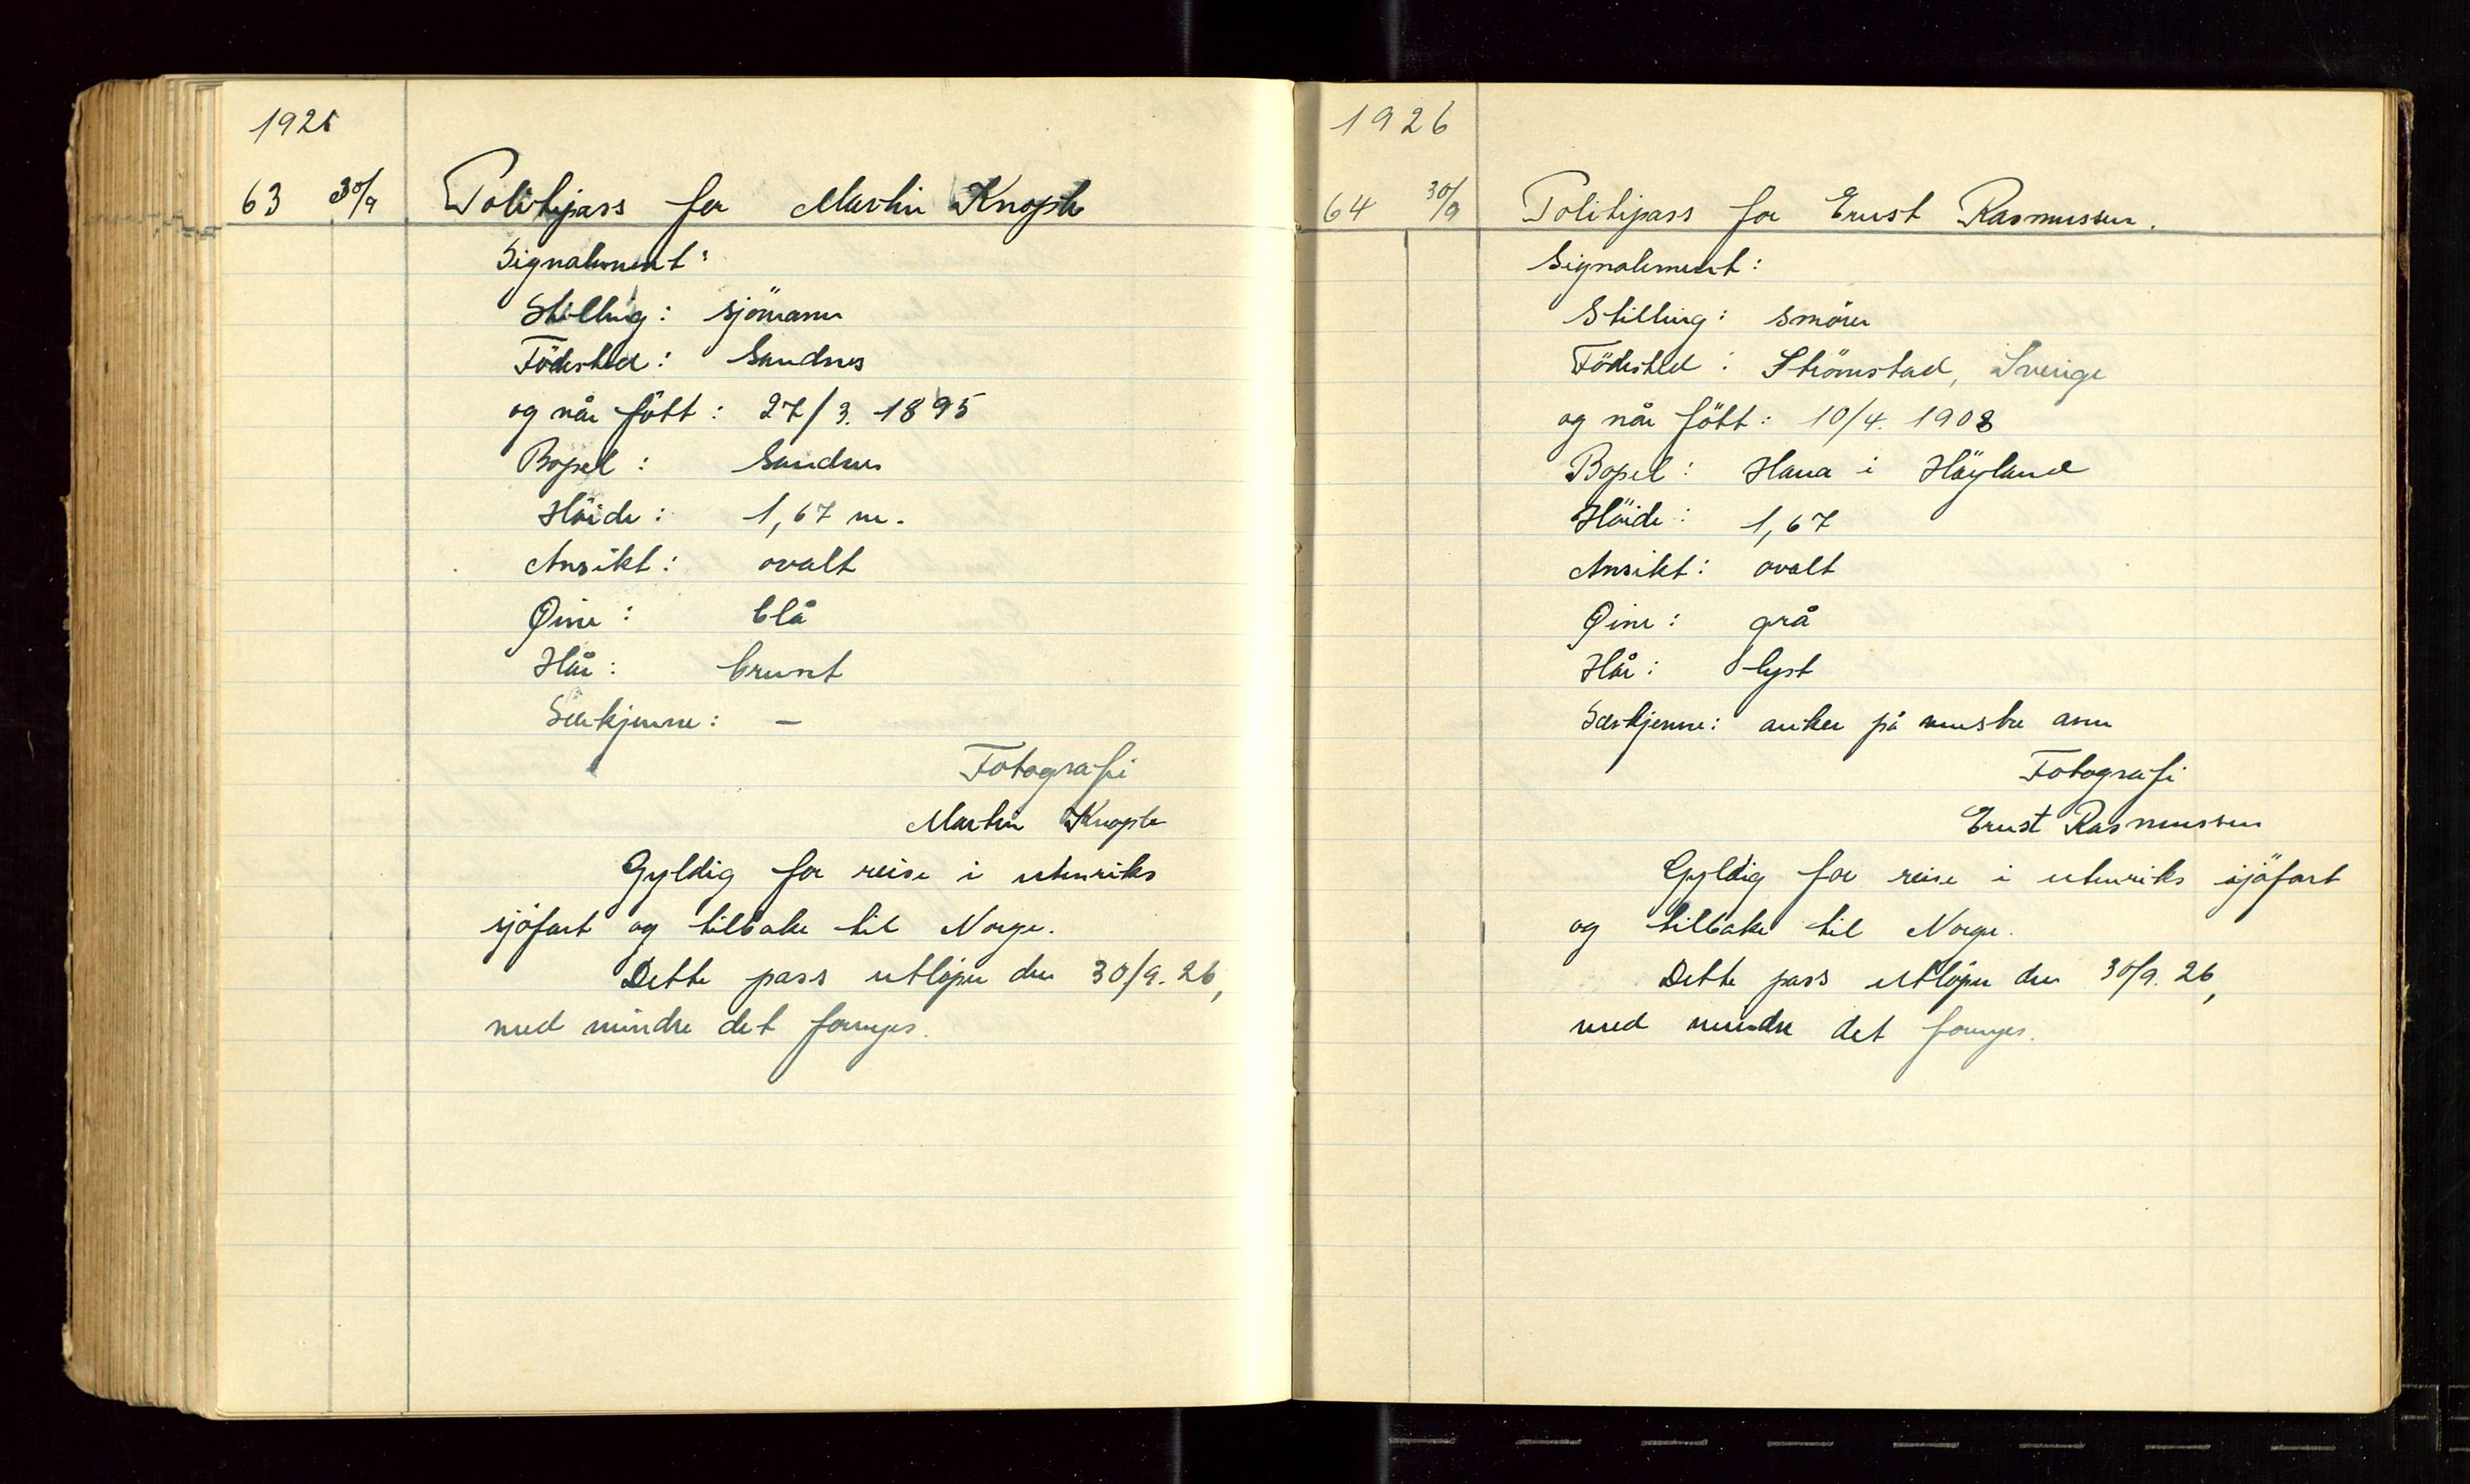 1925
63 30/9 Politipass for Martin Knoph
Signalement:
Stilling: sjömann
Födested: Sandnes
og når fött: 27/3. 1895
Bopel: Sandnes
Höide: 1,67 m.
Ansikt: ovalt
Øine: blå
Hår: brunt
Særkjenne: –
Fotografi
Martin Knoph
Gyldig for reise i utenriks
sjöfart og tilbake til Norge.
Dette pass utlöper den 30/9. 26,
med mindre det fornyes.
1926
64 30/9 Politipass for Ernst Rasmussen.
Signalement:
Stilling: smörer
Födested: Strömstad, Sverige
og når fött: 10/4. 1908
Bopel: Hana i Höyland
Höide: 1,67
Ansikt: ovalt
Øine: grå
Hår: lyst
Særkjenne: anker på venstre arm
Fotografi
Ernst Rasmussen
Gyldig for reise i utenriks sjöfart
og tilbake til Norge.
Dette pass utlöper den 30/9. 26,
med mindre det fornyes.